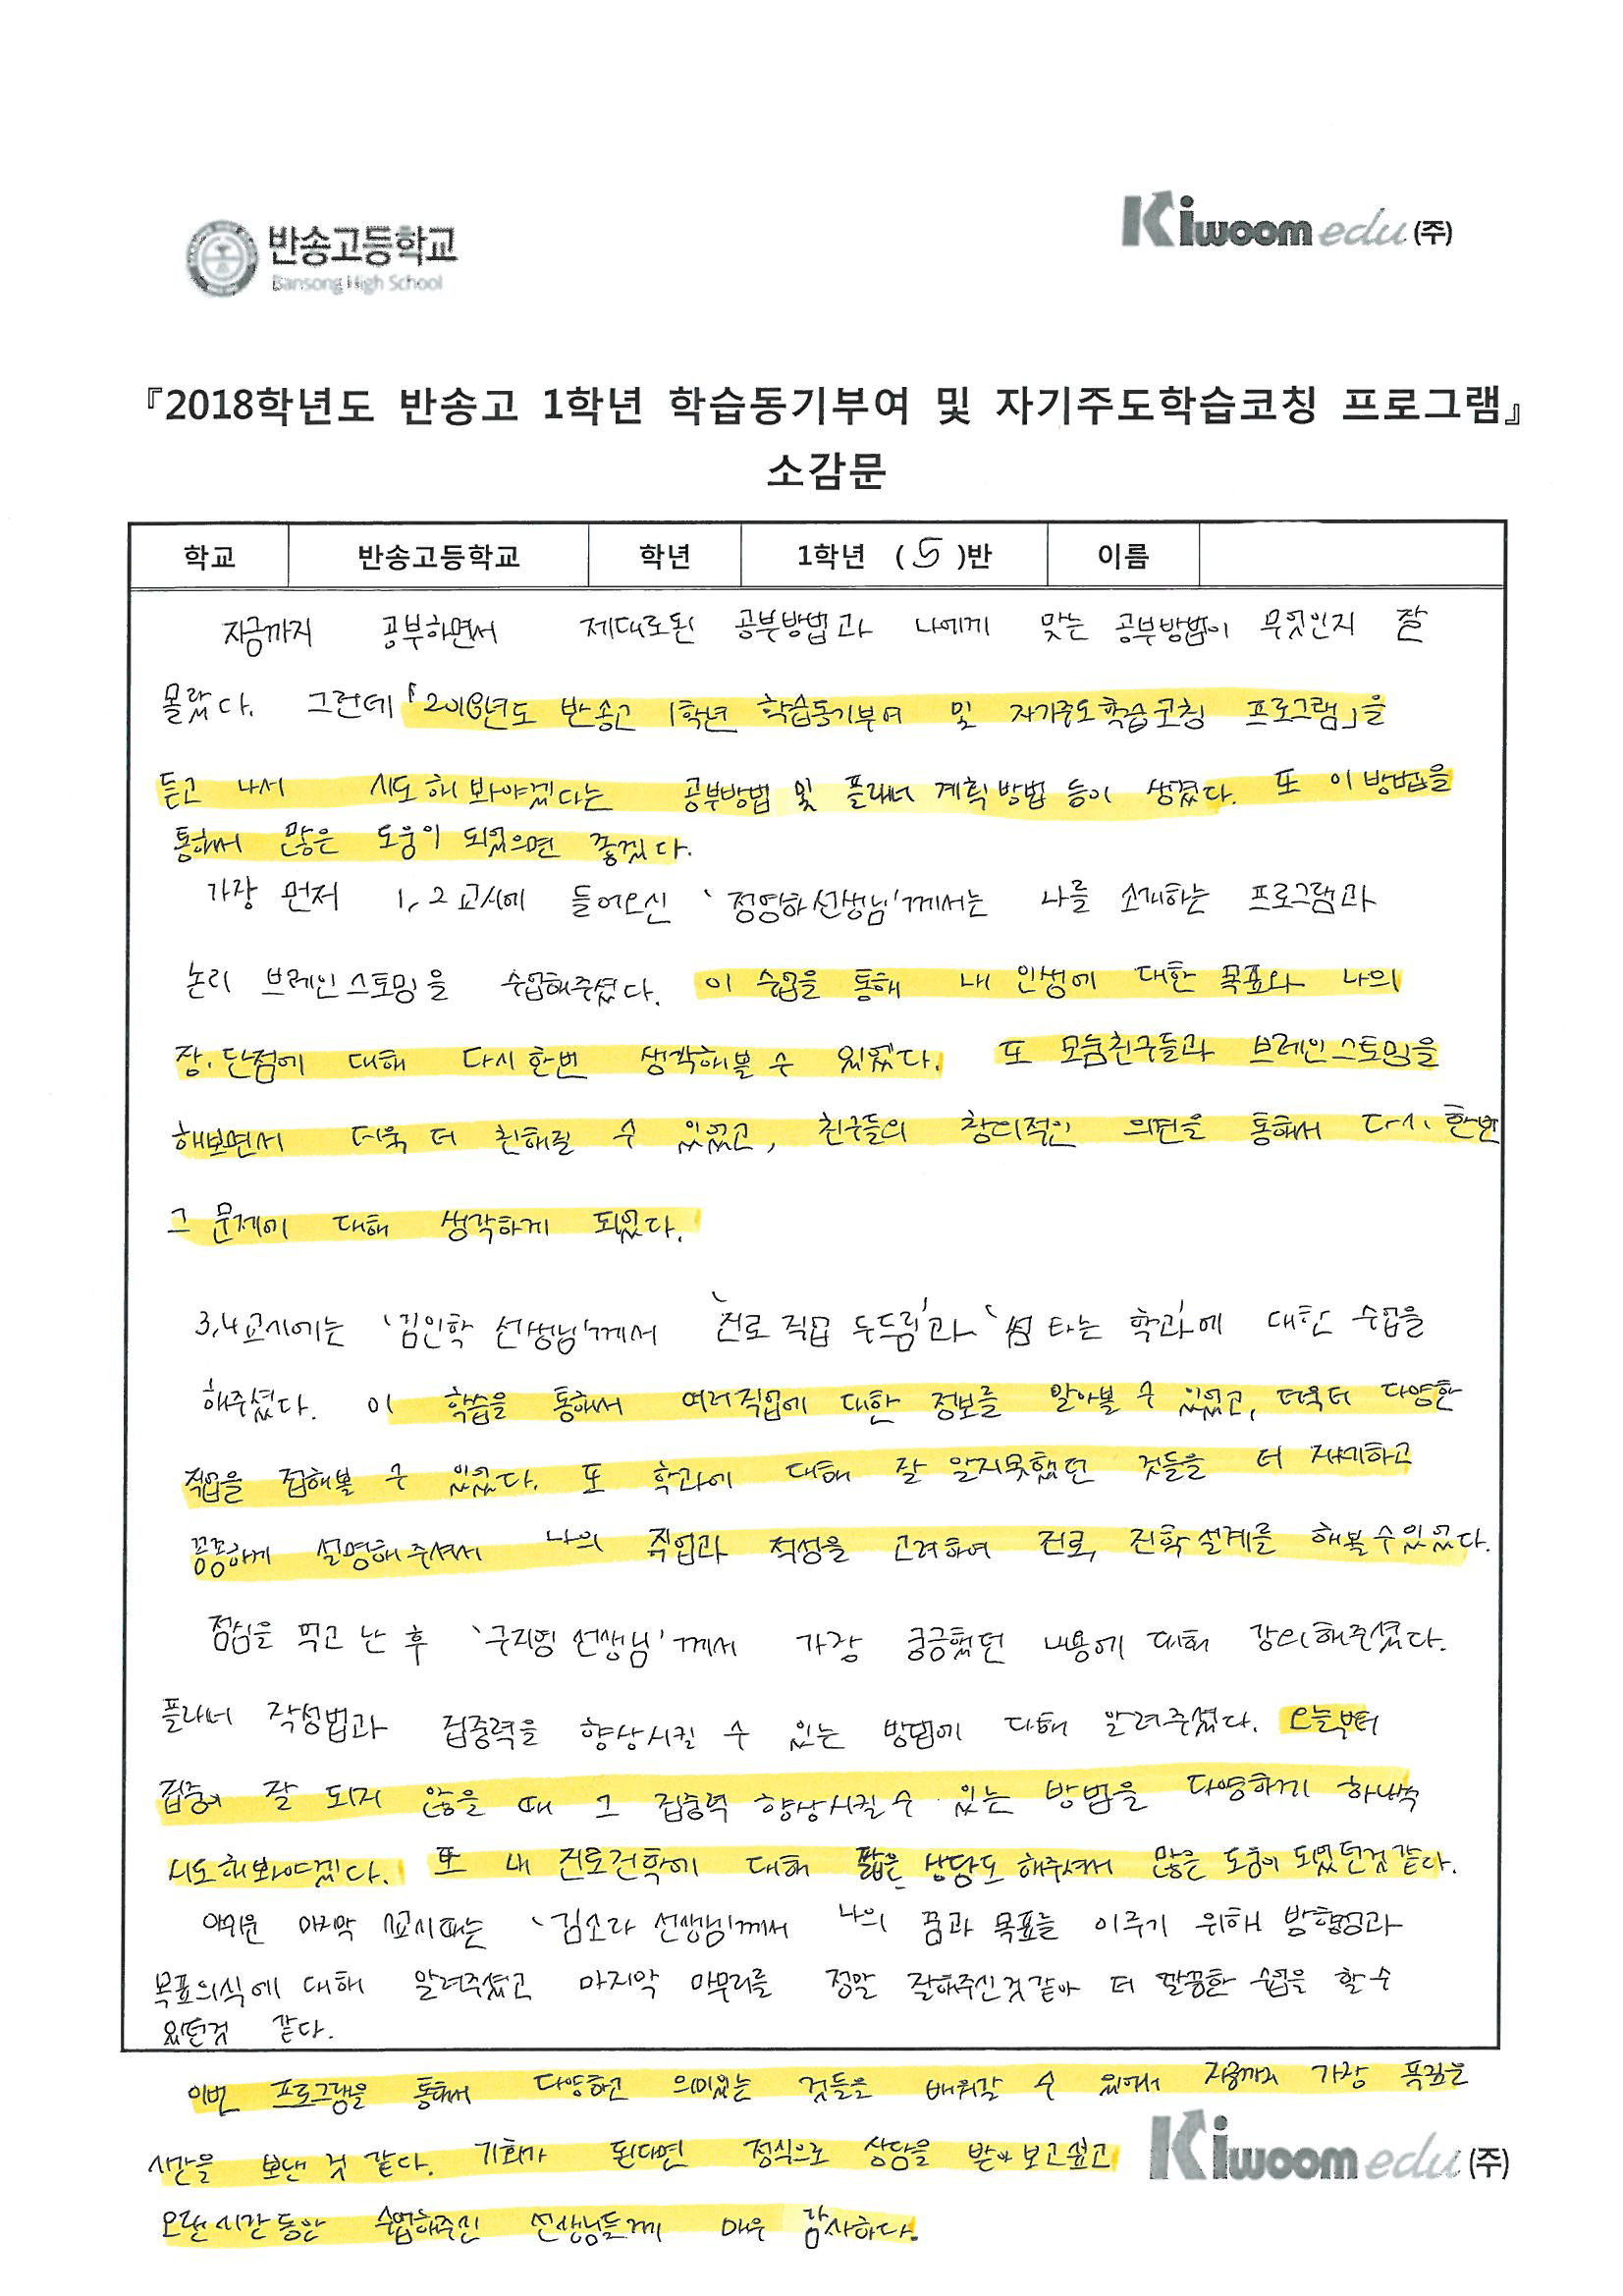 반송고등학교
Bansong High School
Kiwoom edu (주)
『2018학년도 반송고 1학년 학습동기부여 및 자기주도학습코칭 프로그램』
소감문
학교 반송고등학교 학년 1학년 (5)반 이름
지금까지 공부하면서 제대로된 공부방법과 나에게 맞는 공부방법이 무엇인지 잘
몰랐다. 그런데 「2018년도 반송고 1학년 학습동기부여 및 자기주도학습코칭 프로그램」을
듣고 나서 시도해 봐야겠다는 공부방법 및 플래너 계획방법 등이 생겼다. 또 이 방법을
통해서 많은 도움이 되었으면 좋겠다.
가장 먼저 1, 2교시에 들어오신 '정영하선생님'께서는 나를 소개하는 프로그램과
논리 브레인스토밍을 수업해주셨다. 이 수업을 통해 내 인생에 대한 목표와 나의
장.단점에 대해 다시한번 생각해볼 수 있었다. 또 모둠친구들과 브레인스토밍을
해보면서 더욱 더 친해질 수 있었고, 친구들의 창의적인 의견을 통해서 다시 한번
그 문제에 대해 생각하게 되었다.
3,4교시에는 '김인학 선생님'께서 '진로 직업 두드림'과 '썸 타는 학과'에 대한 수업을
해주셨다. 이 학습을 통해서 여러직업에 대한 정보를 알아볼 수 있었고, 더욱더 다양한
직업을 접해볼 수 있었다. 또 학과에 대해 잘 알지못했던 것들을 더 자세하고
꼼꼼하게 설명해주셔서 나의 직업과 적성을 고려하여 진로, 진학설계를 해볼수있었다.
점심을 먹고 난 후 '구지영 선생님'께서 가장 궁금했던 내용에 대해 강의해주셨다.
플래너 작성법과 집중력을 향상시킬 수 있는 방법에 대해 알려주셨다. 오늘부터
집중이 잘 되지 않을 때 그 집중력 향상시킬수 있는 방법을 다양하게 하나씩
시도해봐야겠다. 또 내 진로진학에 대해 짧은 상담도 해주셔서 많은 도움이 되었던것같다.
아쉬운 마지막 1교시때는 '김소라 선생님'께서 나의 꿈과 목표를 이루기 위해 방향성과
목표의식에 대해 알려주셨고 마지막 마무리를 정말 잘해주신것같아 더 깔끔한 수업을 할 수
있던것 같다.
이번 프로그램을 통해서 다양하고 의미있는 것들을 배워갈 수 있어서 지금까지 가장 뜻깊은
시간을 보낸 것 같다. 기회가 된다면 정식으로 상담을 받아 보고싶고
Kiwoom edu (주)
오랜시간동안 수업해주신 선생님들께 매우 감사하다.